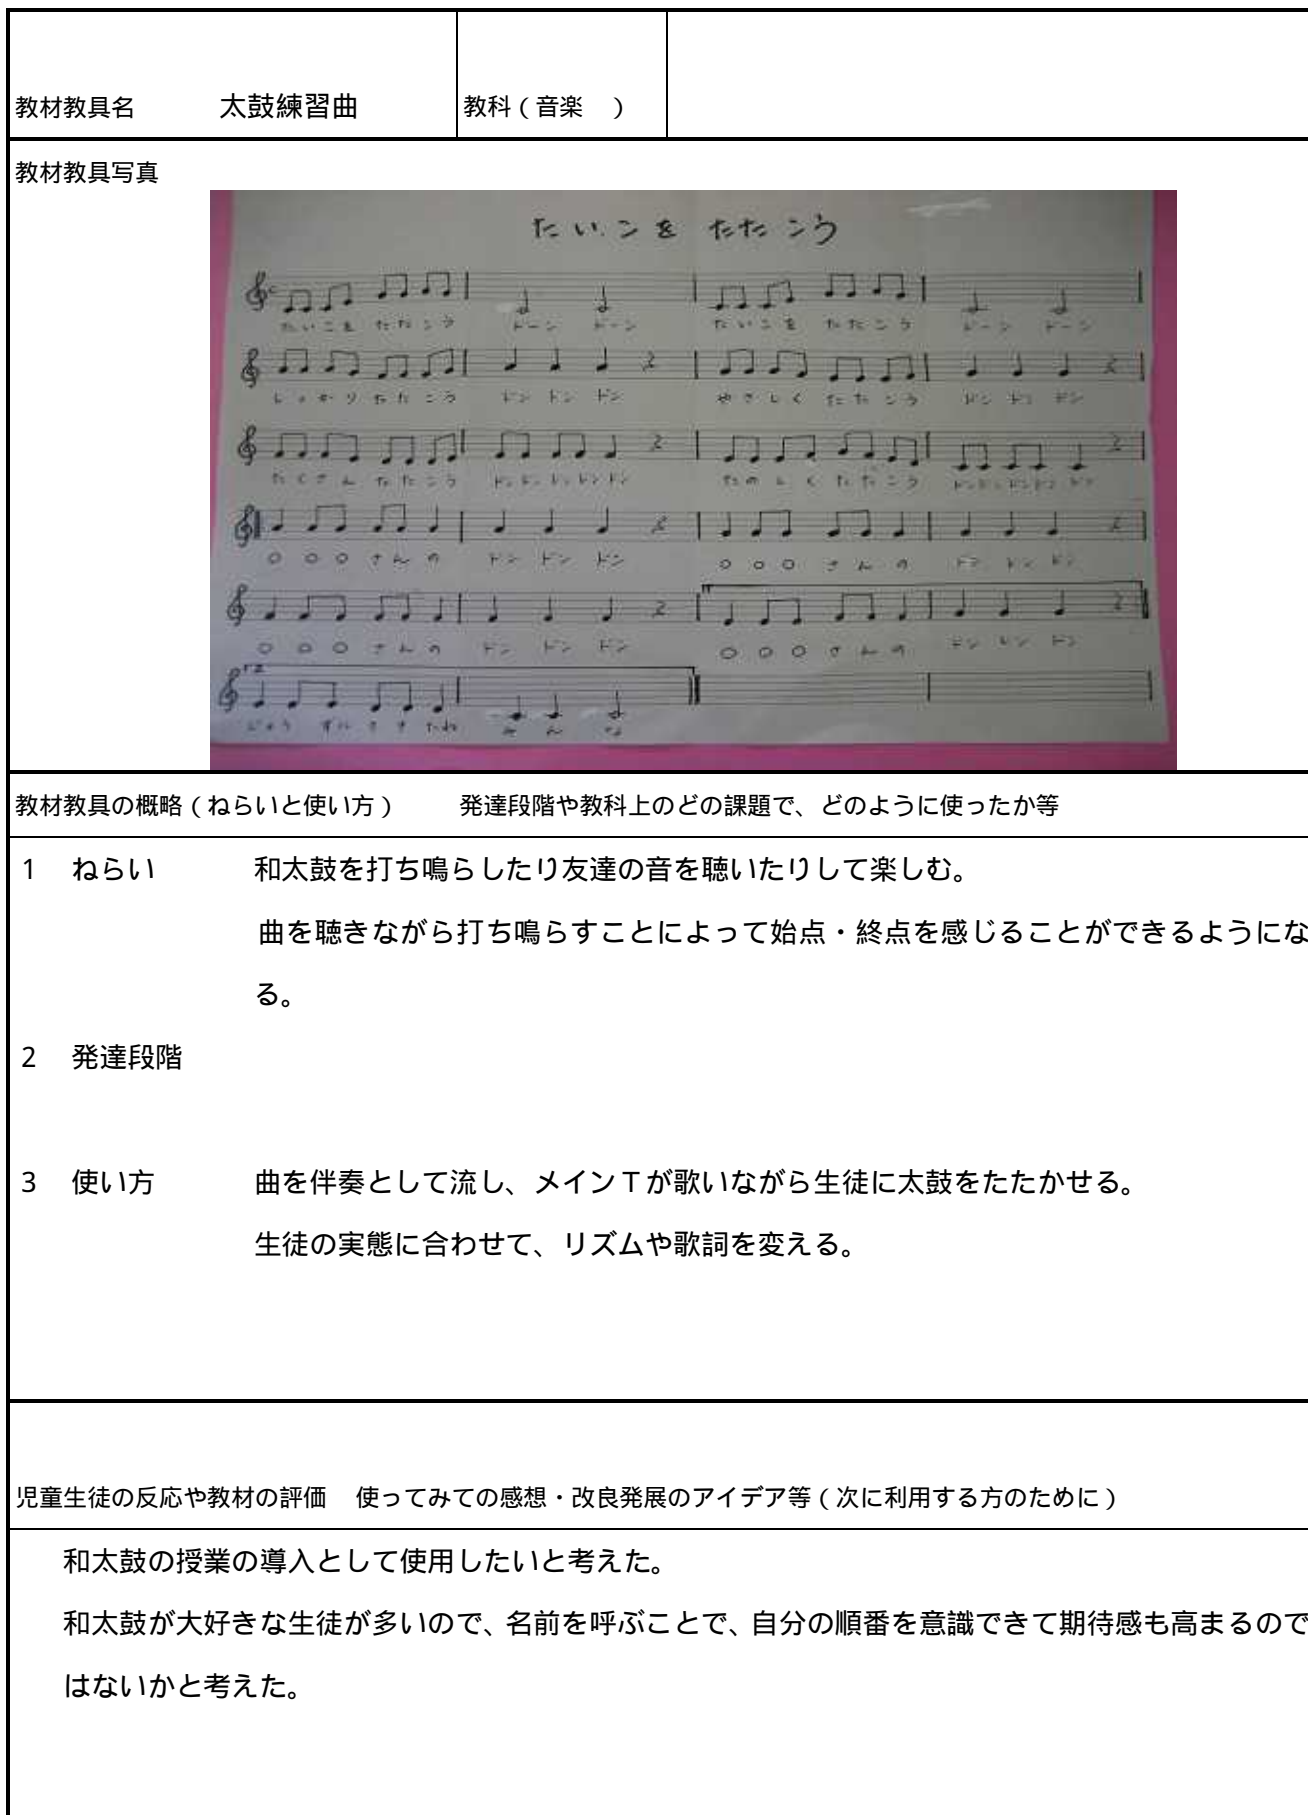 教材教具名 太鼓練習曲 教科(音楽 )
教材教具写真
たいこを たたこう
たいこを たたこう ドーン ドーン たいこを たたこう ドーン ドーン
しっかり たたこう ドン ドン ドン やさしく たたこう ドン ドン ドン
たくさん たたこう ドンドンドンドンドン たのしく たたこう ドンドンドンドンドン
○○○さんの ドン ドン ドン ○○○さんの ドン ドン ドン
○○○さんの ドン ドン ドン ○○○さんの ドン ドン ドン
教材教具の概略(ねらいと使い方) 発達段階や教科上のどの課題で、どのように使ったか等
1 ねらい 和太鼓を打ち鳴らしたり友達の音を聴いたりして楽しむ。
曲を聴きながら打ち鳴らすことによって始点・終点を感じることができるようにな
る。
2 発達段階
3 使い方 曲を伴奏として流し、メインTが歌いながら生徒に太鼓をたたかせる。
生徒の実態に合わせて、リズムや歌詞を変える。
児童生徒の反応や教材の評価 使ってみての感想・改良発展のアイデア等(次に利用する方のために)
和太鼓の授業の導入として使用したいと考えた。
和太鼓が大好きな生徒が多いので、名前を呼ぶことで、自分の順番を意識できて期待感も高まるので
はないかと考えた。